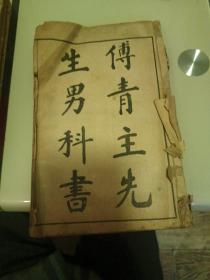 傅青主先
生男科書